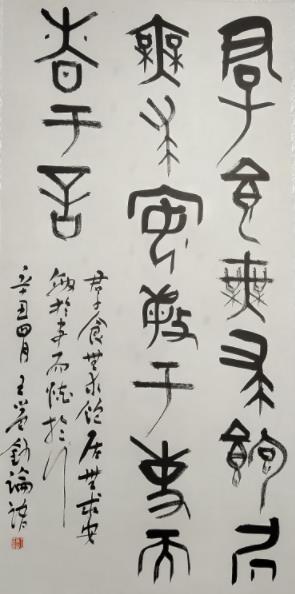 君子食無求飽居
無求安敏于事而
昚于言
君子食無求飽居無求安
敏於事而慎於言
辛丑四月王論語